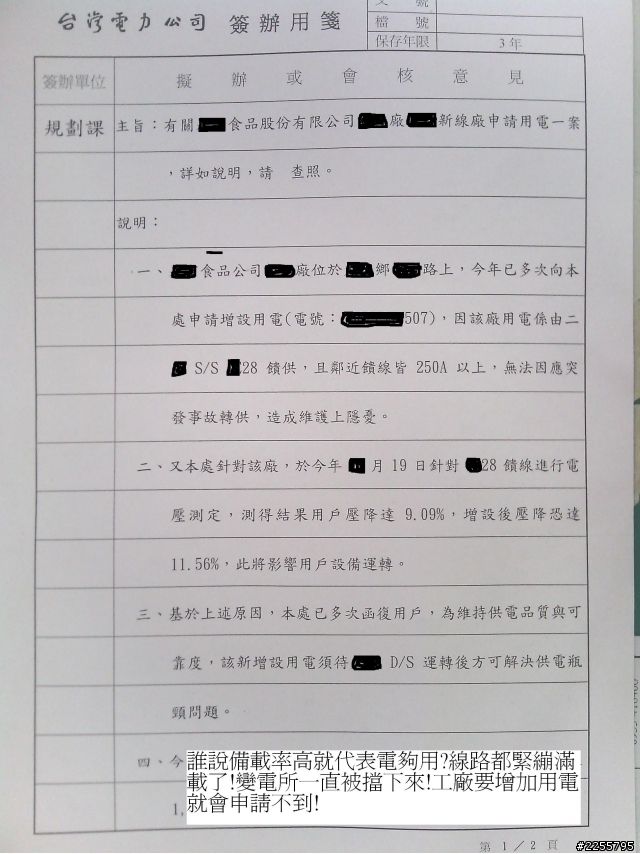 台灣電力公司 簽辦用箋
文 號
檔 號
保存年限 3年
簽辦單位 擬辦或會核意見
規劃課 主旨：有關食品股份有限公司廠新線廠申請用電一案
，詳如說明，請 查照。
說明：
一、食品公司廠位於鄉路上，今年已多次向本
處申請增設用電(電號：507)，因該廠用電係由二
S/S 28 饋供，且鄰近饋線皆 250A 以上，無法因應突
發事故轉供，造成維護上隱憂。
二、又本處針對該廠，於今年 月 19 日針對 28 饋線進行電
壓測定，測得結果用戶壓降達 9.09%，增設後壓降恐達
11.56%，此將影響用戶設備運轉。
三、基於上述原因，本處已多次函復用戶，為維持供電品質與可
靠度，該新增設用電須待 D/S 運轉後方可解決供電瓶
頸問題。
四、今
誰說備載率高就代表電夠用?線路都緊繃滿
載了!變電所一直被擋下來!工廠要增加用電
就會申請不到!
1,
第 1 / 2 頁
#2255795